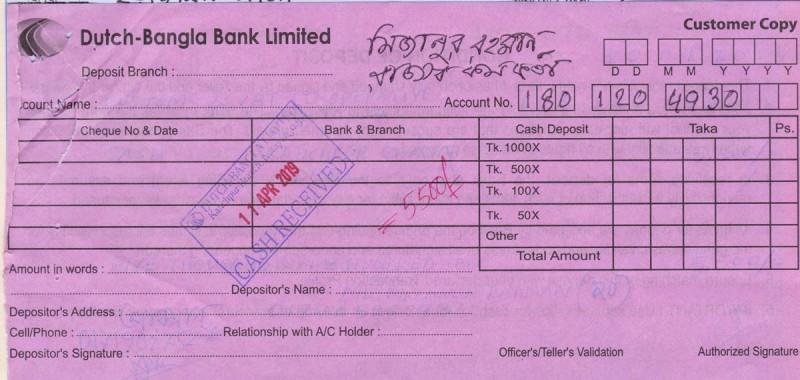 Customer Copy
Dutch-Bangla Bank Limited
মিজানুর রহমান
Deposit Branch :
D D M M Y Y Y Y
ccount Name : Account No. 180 120 4930
Cheque No & Date Bank & Branch Cash Deposit Taka Ps.
Tk. 1000X
Tk. 500X
Tk. 100X
Tk. 50X
Other
Total Amount
DUTCH-BANGLA BANK
11 APR 2019
CASH RECEIVED
= 5500/=
Amount in words :
Depositor's Name :
Depositor's Address :
Cell/Phone : Relationship with A/C Holder :
Depositor's Signature : Officer's/Teller's Validation Authorized Signature